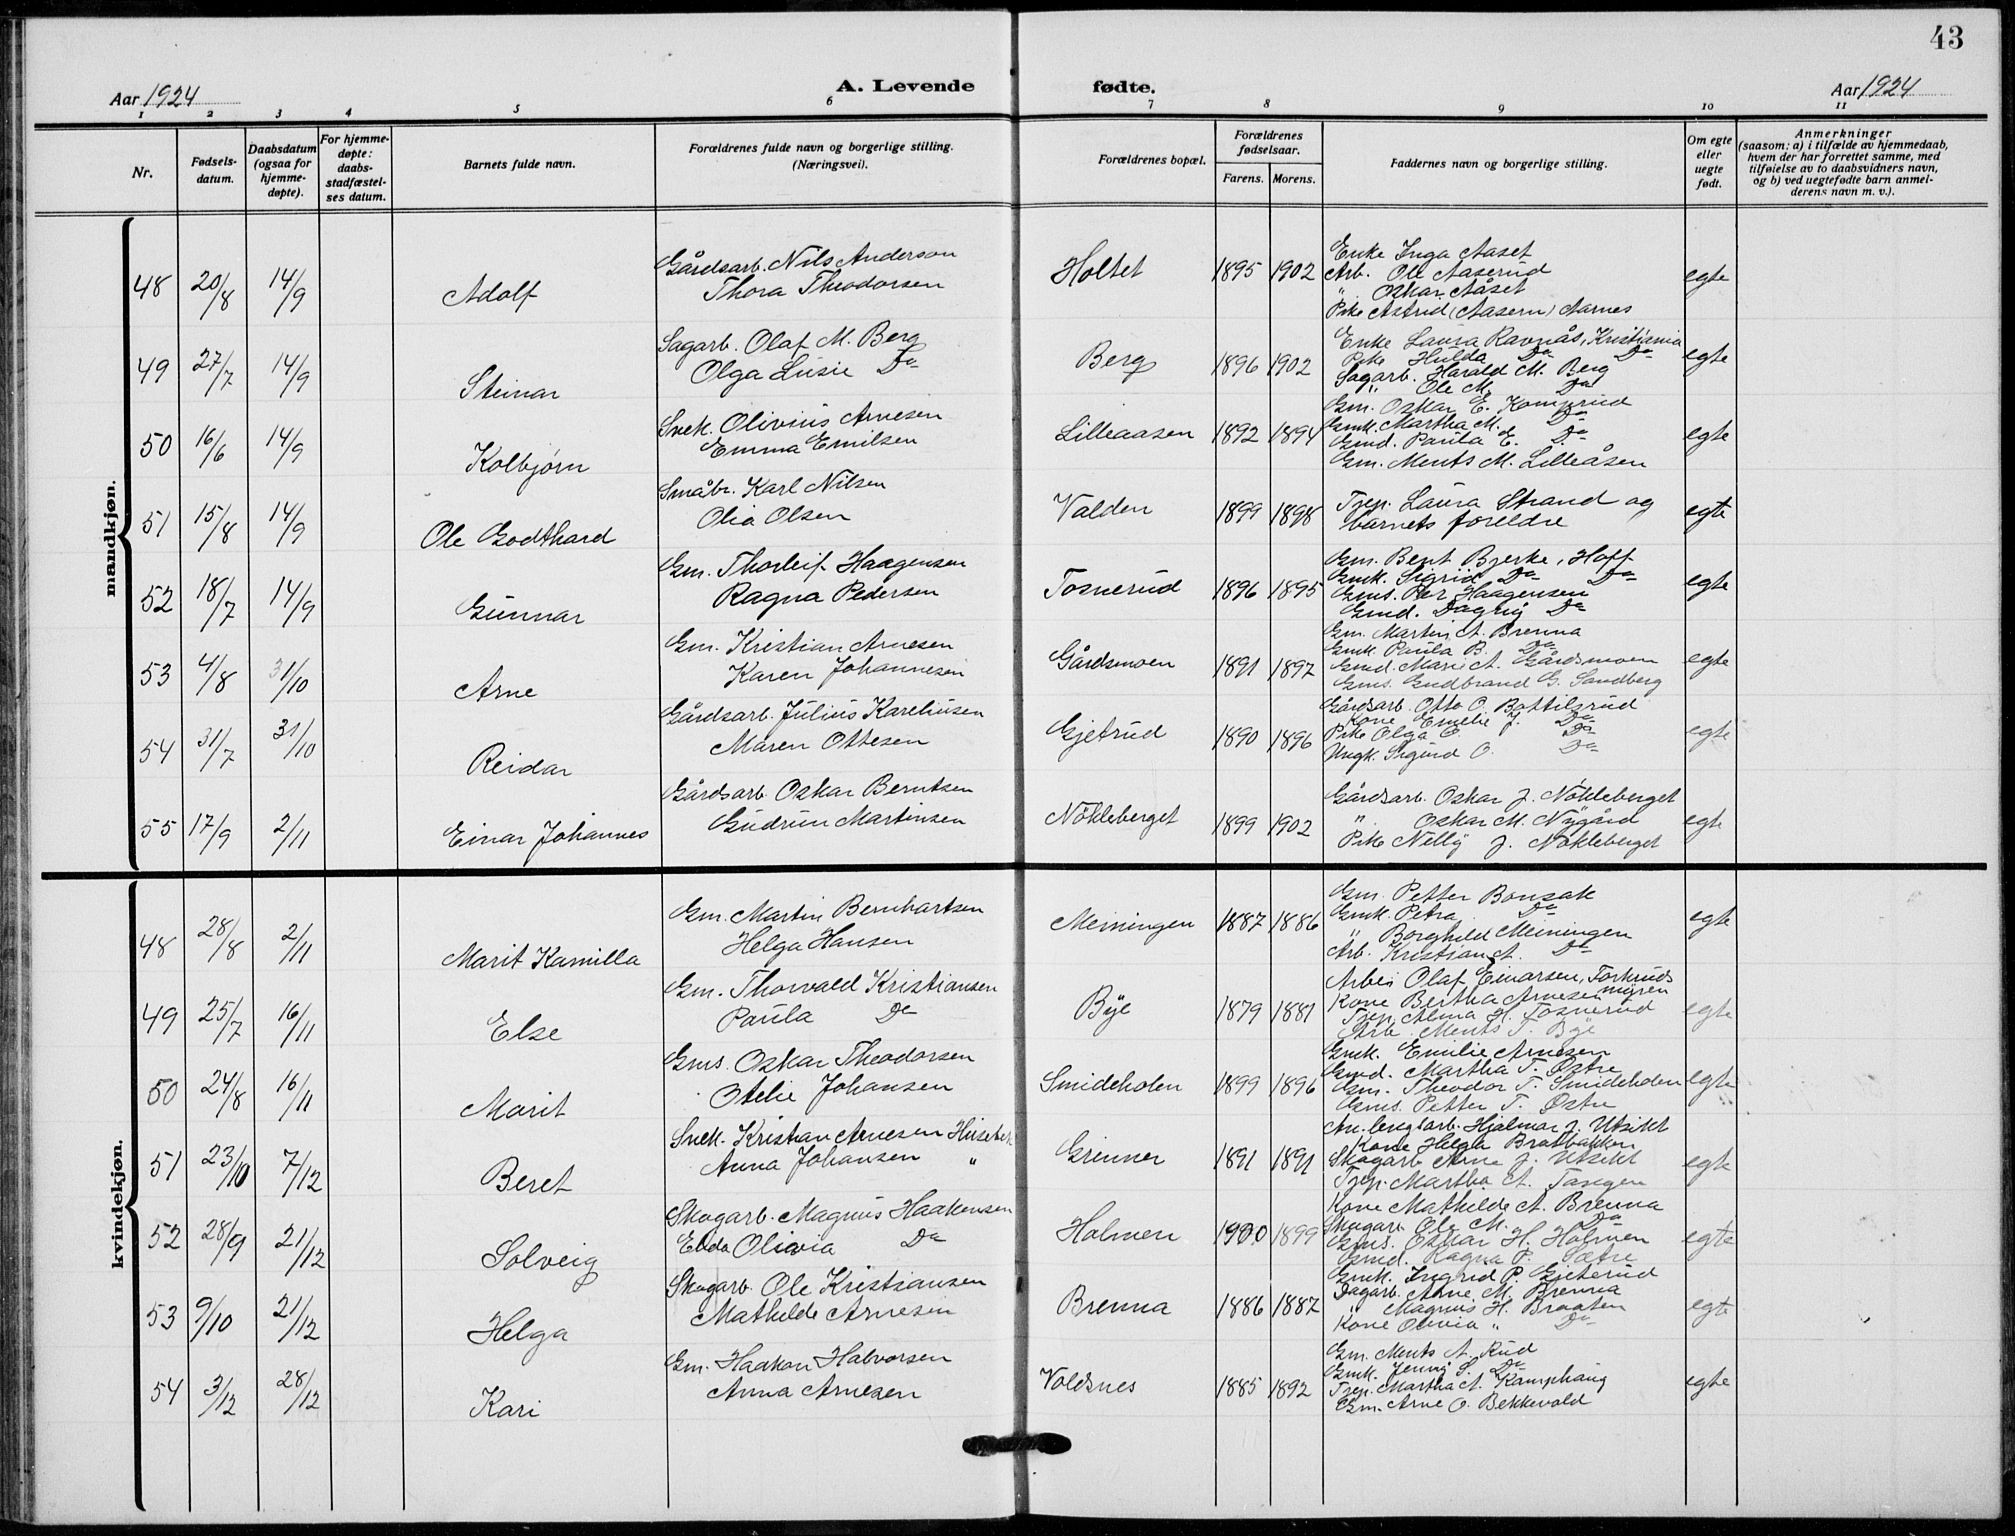 43
Aar 1924
A. Levende
fødte.
Aar 1924
1 2 3 4 5 6 7 8 9 10 11
Nr.
Fødsels-
datum.
Daabsdatum
(ogsaa for
hjemme-
døpte).
For hjemme-
døpte:
daabs-
stadfæstel-
ses datum.
Barnets fulde navn.
Forældrenes fulde navn og borgerlige stilling.
(Næringsvei).
Forældrenes bopæl.
Forældrenes
fødselsaar.
Farens. Morens.
Faddernes navn og borgerlige stilling.
Om egte
eller
uegte
født.
Anmerkninger
(saasom: a) i tilfælde av hjemmedaab,
hvem der har forrettet samme, med
tilføielse av to daabsvidners navn,
og b) ved uegtefødte barn anmel-
derens navn m. v.).
mandkjøn.
48 20/8 14/9 Adolf
Gårdsarb. Nils Anderson
Thora Theodorsen
Holtet 1895 1902
Enke Inga Aaset
Arb. Ole Aaserud
" Oskar Aåset
Pike Astrid (Aasern) Aarnes
egte
49 27/7 14/9 Steinar
Sagarb. Olaf M. Berg
Olga Lusie Do
Berg 1896 1902
Enke Laura Ravnås, Kristiania
Pike Hulda Do Do
Sagarb. Harald M. Berg
" Ole M. Do
egte
50 16/6 14/9 Kolbjørn
Snek. Olivius Arnesen
Emma Emilsen
Lilleaasen 1892 1894
Gm. Oskar E. Komperud
Gmk. Martha M. Do
Gmd. Paula E. Do
Gm. Ments M. Lilleåsen
egte
51 15/8 14/9 Ole Godthard
Småbr. Karl Nilsen
Olia Olsen
Valden 1899 1898
Tjep. Laura Strand og
barnets foreldre
egte
52 18/7 14/9 Gunnar
Gm. Thorleif Haagensen
Ragna Pedersen
Tosnerud 1896 1895
Gm. Bent Bjerke, Hoff
Gmk. Sigrid Do Do
Gms. Per Haagensen
Gmd. Dagny Do
egte
53 4/8 31/10 Arne
Gm. Kristian Arnesen
Karen Johannesen
Gårdsmoen 1891 1897
Gm. Martin A. Brenna
Gmk. Paula B. Do
Gmd. Marie A. Gårdsmoen
Gms. Gudbrand G. Sandberg
egte
54 31/7 31/10 Reidar
Gårdsarb. Julius Kareliusen
Maren Ottesen
Gjetrud 1890 1896
Gårdsarb. Otto O. Bottilsrud
Kone Emelie J. Do
Pike Olga O. Do
Ungk. Sigurd O. Do
egte
55 17/9 2/11 Einar Johannes
Gårdsarb. Oskar Berntsen
Gudrun Martinsen
Nökleberget 1899 1902
Gårdsarb. Oskar J. Nökleberget
" Oskar M. Nygård
Pike Nelly J. Nökleberget
egte
kvindekjøn.
48 28/8 2/11 Marit Kamilla
Gm. Martin Bernhartsen
Helga Hansen
Meiningen 1887 1886
Gm. Petter Bonsak
Gmk. Petra Do
" Borghild Meiningen
Arb. Kristian A. Do
egte
49 25/7 16/11 Else
Gm. Thorvald Kristiansen
Paula Do
Bye 1879 1881
Arbei Olaf Einarsen, Torkruds
myren
Kone Bertha Arnesen
Tjep. Alma H. Tosnerud
Arb. Ments T. Bye
egte
50 24/8 16/11 Marit
Gms. Oskar Theodorsen
Otelie Johansen
Smideholen 1899 1896
Gmk. Emilie Arnesen
Gmd. Martha T. Østre
Gm. Theodor T. Smideholen
Gms. Petter T. Østre
egte
51 23/10 7/12 Beret
Snek. Kristian Arnesen
Anna Johansen "
Grinner 1891 1891
An.legsarb. Hjalmar J. Utsikt
Kone Helga Bratbakken
Skogarb. Arne J. Utsikt
Tjep. Martha A. Tangen
egte
52 28/9 21/12 Solveig
Skogarb. Magnus Haakensen
Edda Olivia Do
Holmen 1900 1899
Kone Mathilde A. Brenna
Skogarb. Ole M. Do
Gms. Oskar H. Holmen
Gmd. Ragna P. Sætre
egte
53 9/10 21/12 Helga
Skogarb. Ole Kristiansen
Mathilde Arnesen
Brenna 1886 1887
Gmk. Ingrid P. Gjeterud
Dagarb. Arne M. Brenna
" Magnus H. Braaten
Kone Olivia " Do
egte
54 3/12 28/12 Kari
Gm. Haakon Halvorsen
Anna Arnesen
Voldsnes 1885 1892
Gm. Ments A. Rud
Gmk. Jenny S. Do
Tjep. Martha A. Kamphaug
Gm. Arne O. Bekkevold
egte